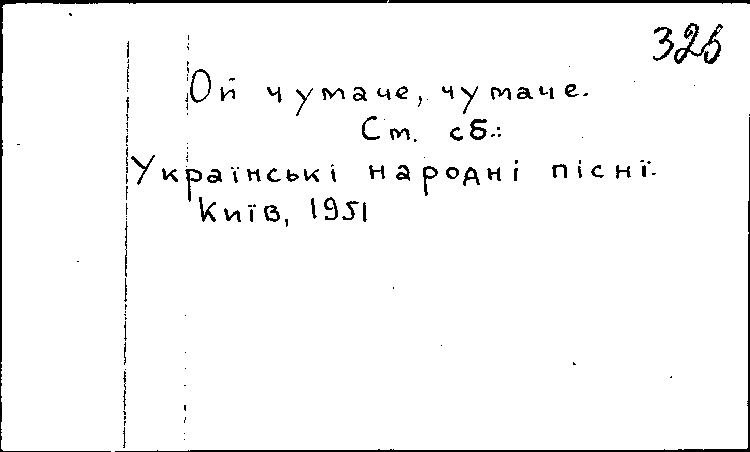 Ой чумаче, чумаче.
См. сб.:
Українські народні пісні.
Київ, 1951